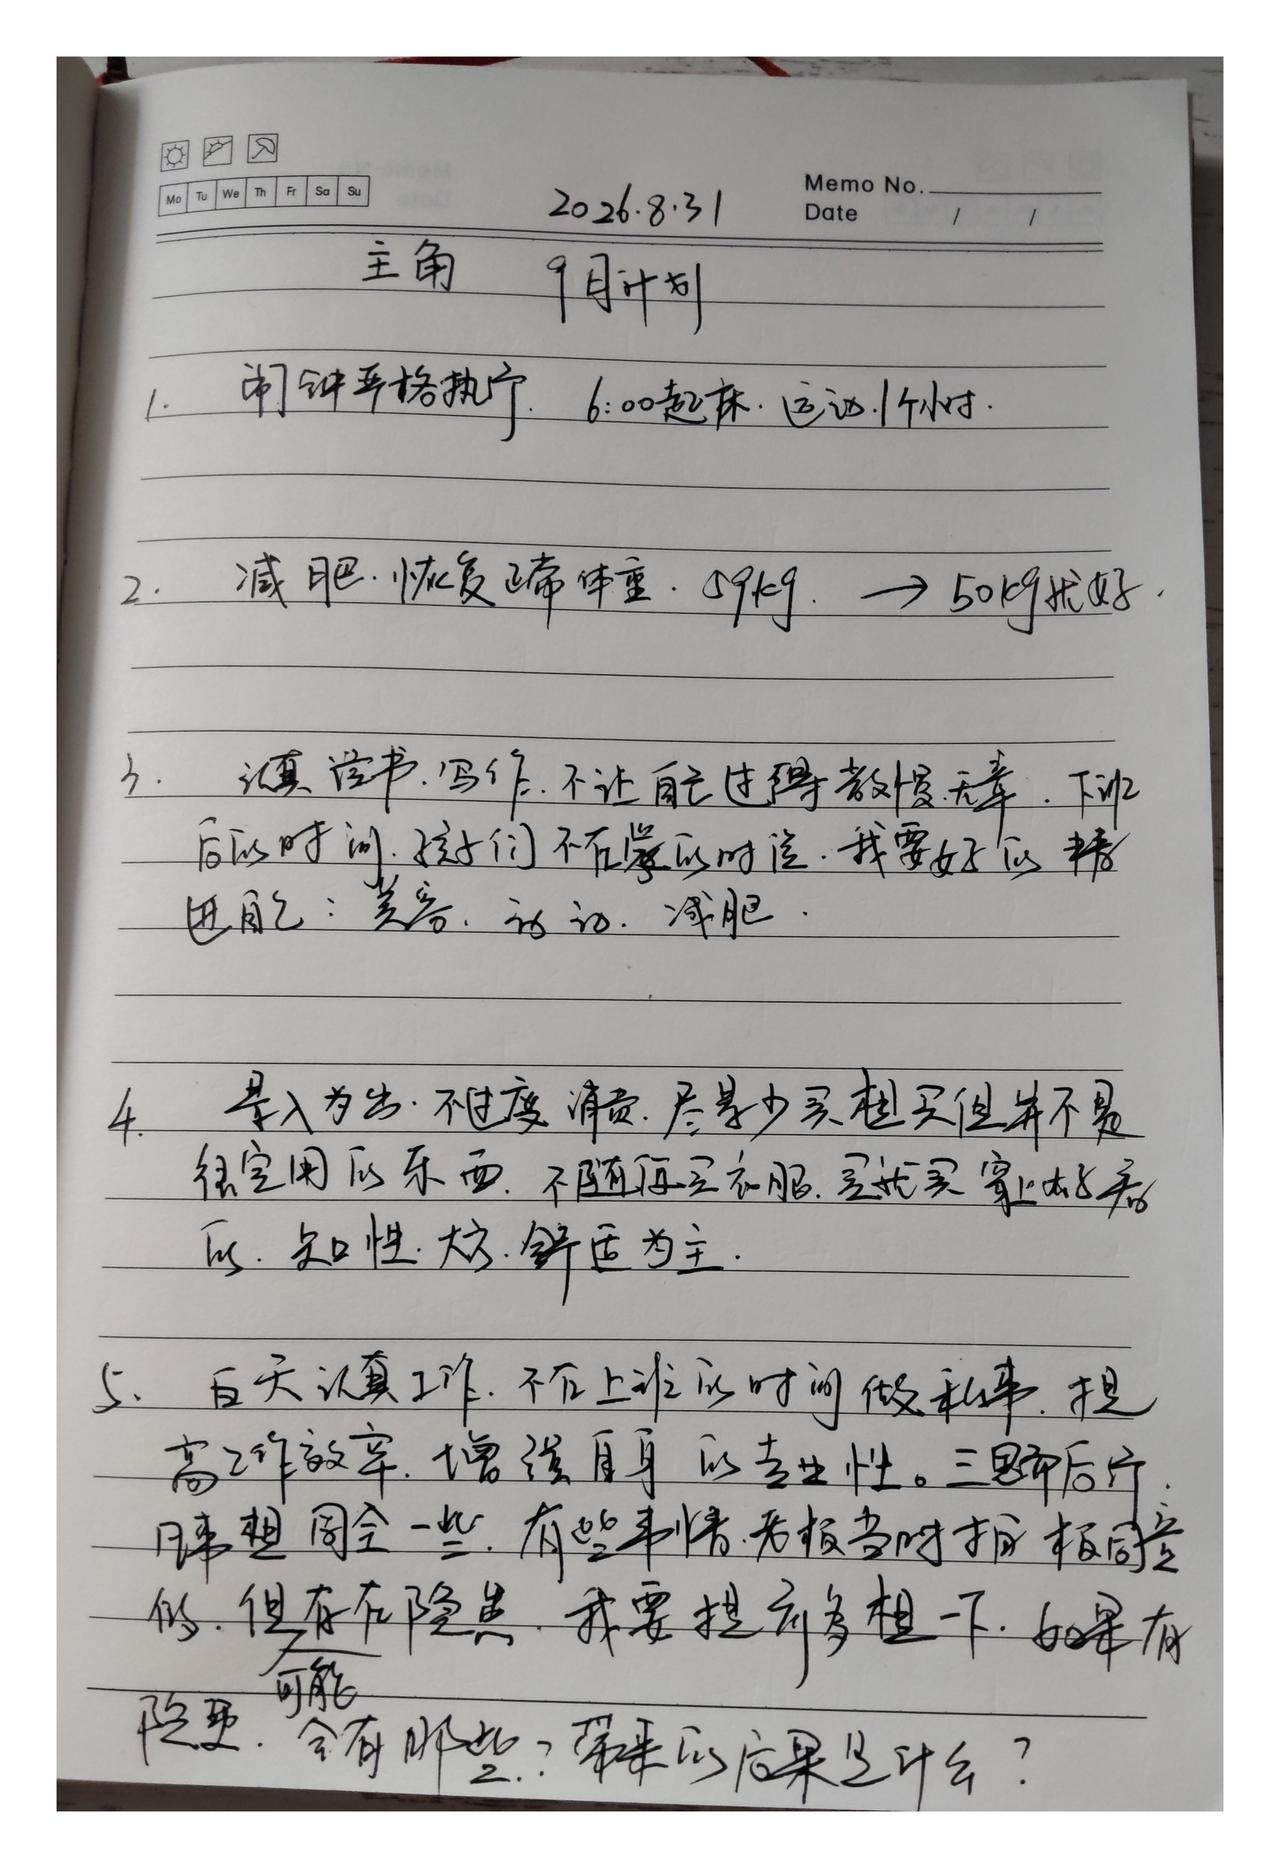 Mo Tu We Th Fr Sa Su
Memo No.
2026.8.31
Date / /
主角 9月计划
1. 闹钟严格执行. 6:00起床. 运动.1个小时.
2. 减肥.恢复正常体重. 59kg. → 50kg就好.
3. 认真读书.写作.不让自己过得散慢无章.下班
后的时间.孩子们不在家的时候.我要好的精
进自己:美容.运动.减肥.
4. 量入为出.不过度消费.尽量少买想买但并不是
很实用的东西.不随便买衣服.买就买穿上好看
的.知性.大方.舒适为主.
5. 白天认真工作.不在上班的时间做私事.提
高工作效率.增强自身的专业性。三思而后行.
凡事想周全一些.有些事情.老板当时拍板同意
的.但存在隐患.我要提前多想一下.如果有
可能
隐患.会有那些?带来的后果是什么?